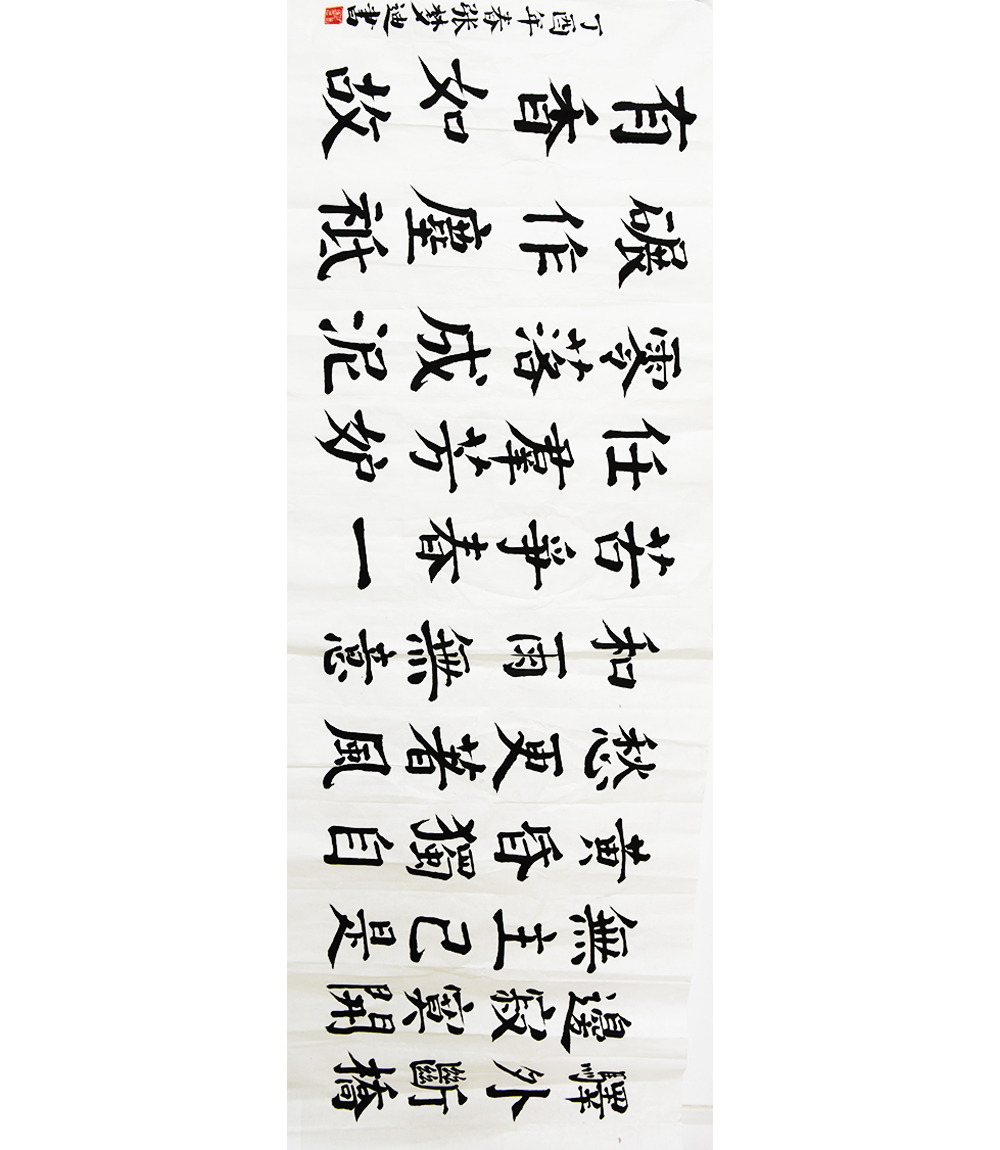 驛外斷橋
邊寂寞開
無主已是
黄昏獨自
愁更著風
和雨無意
苦爭春一
任羣芳妒
零落成泥
碾作塵祇
有香如故
丁酉年春张梦迪書